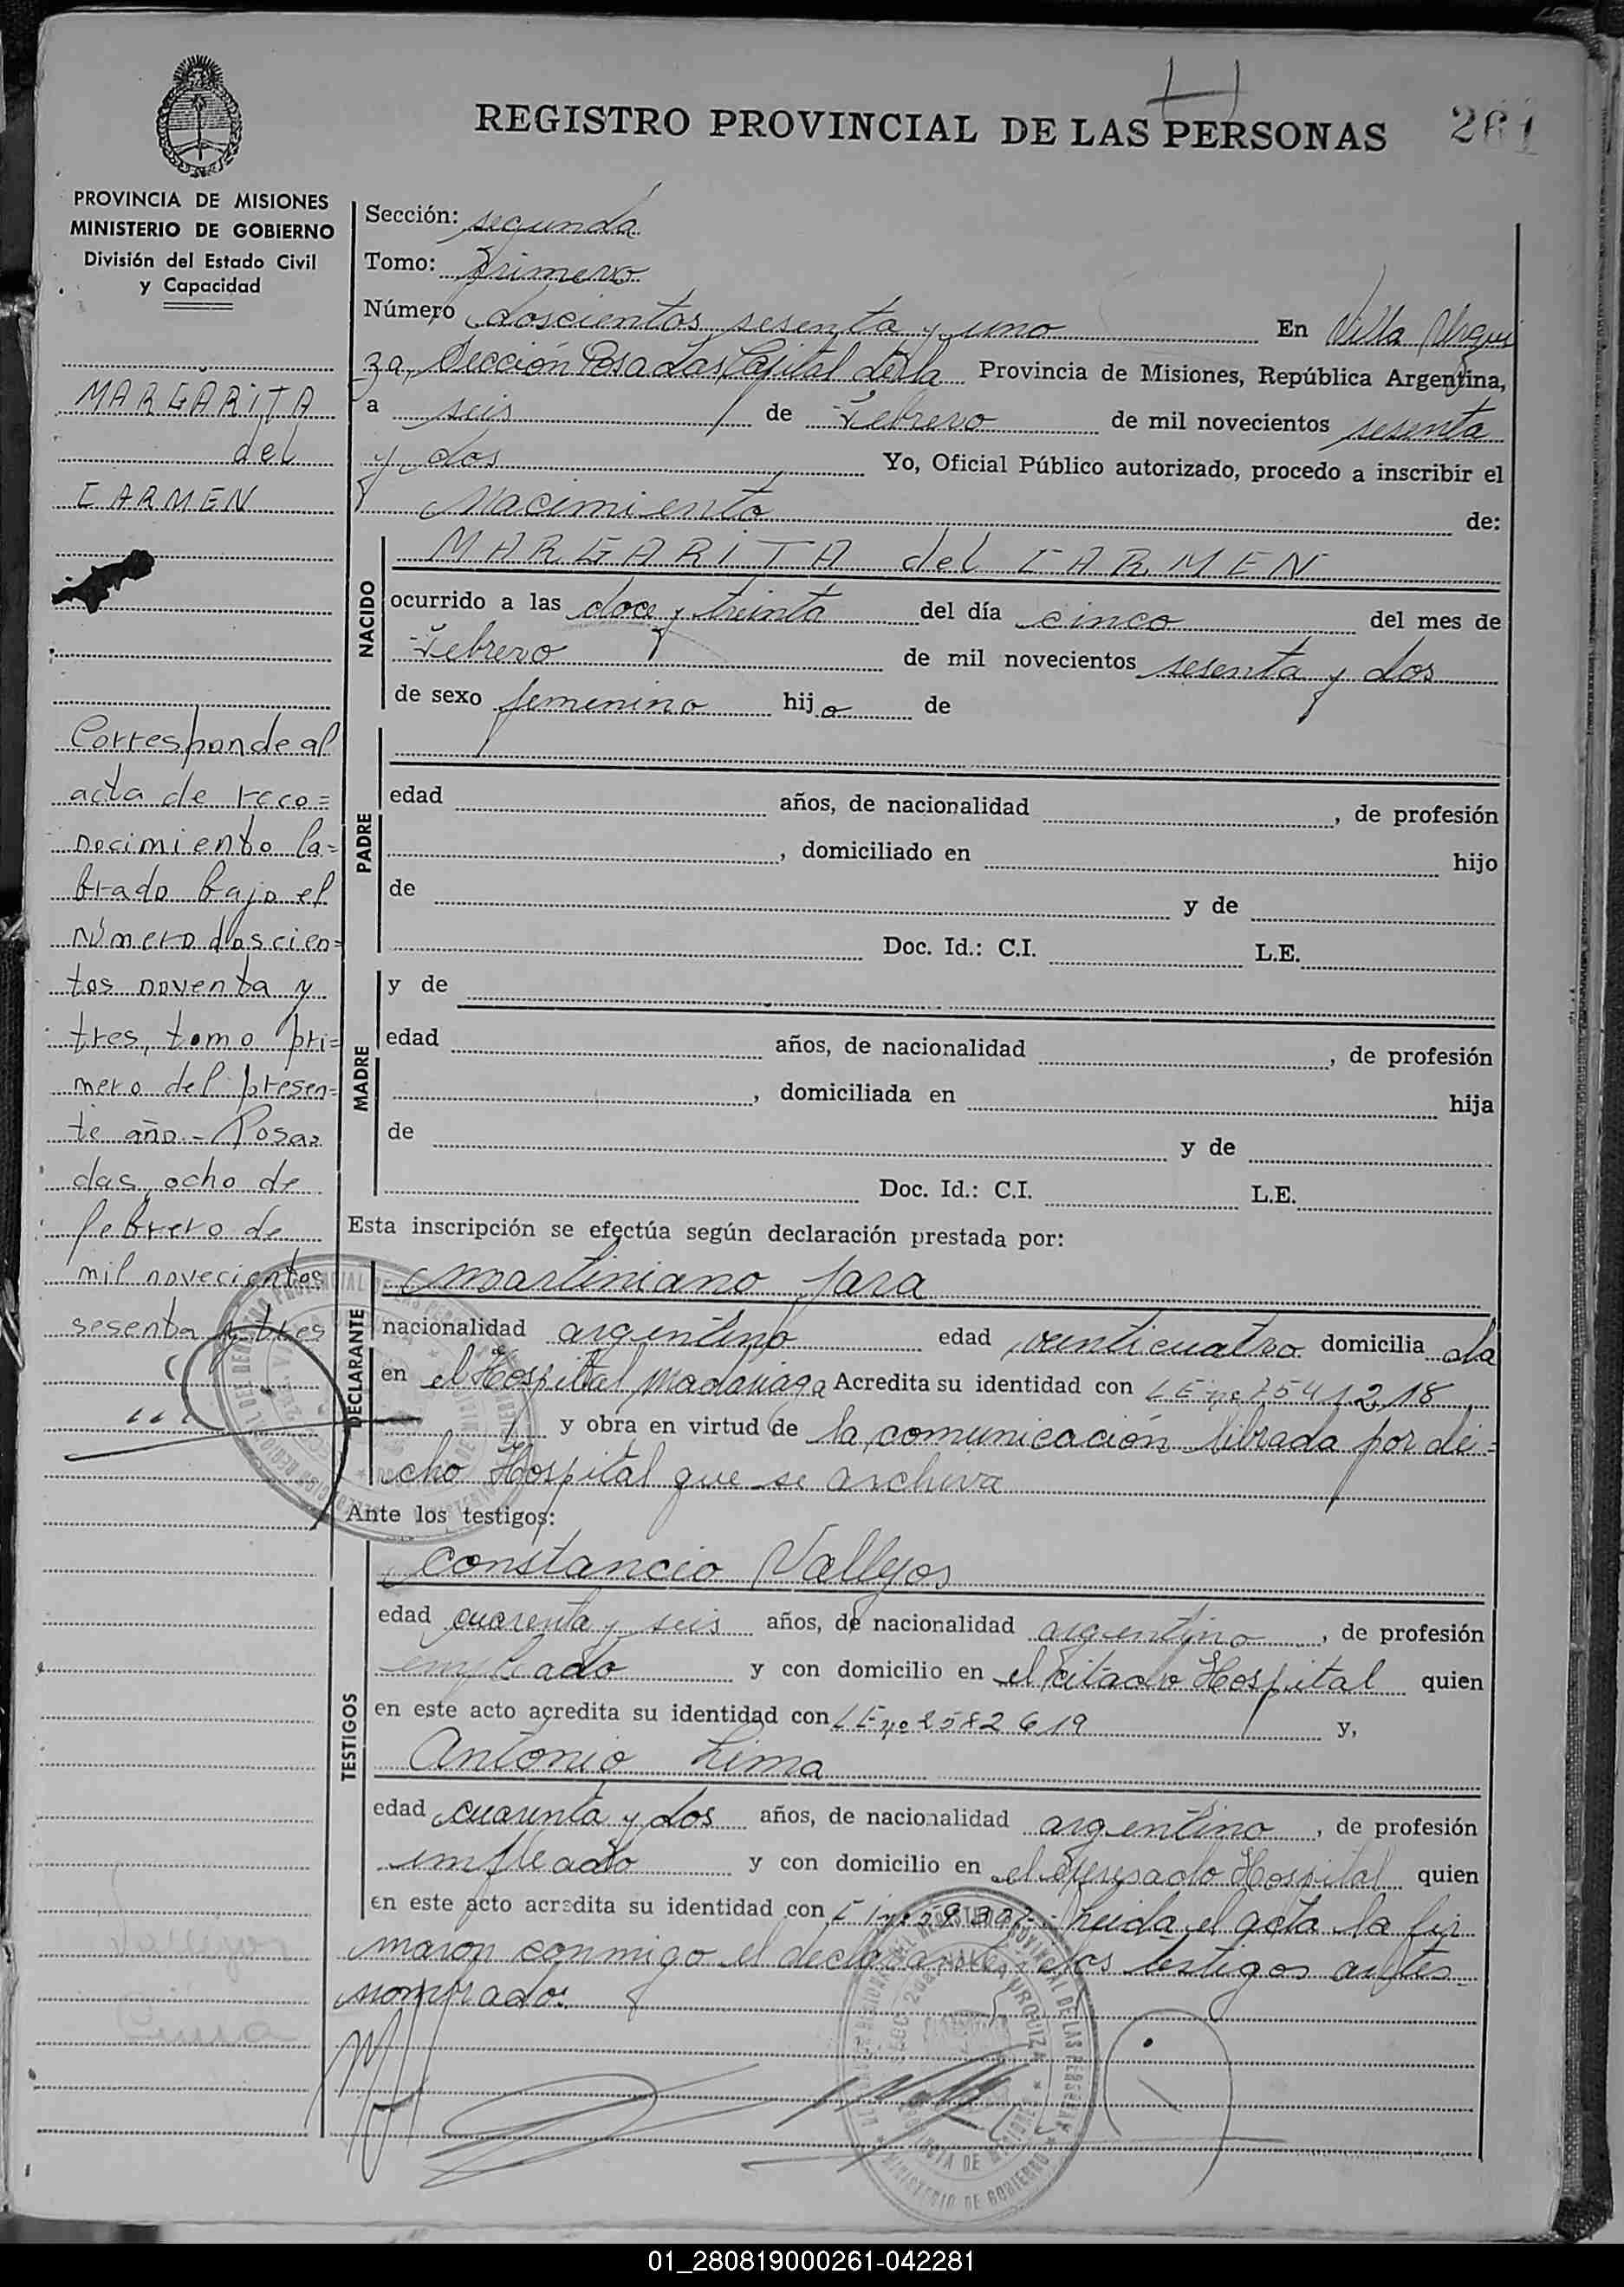 REGISTRO PROVINCIAL DE LAS PERSONAS 261
PROVINCIA DE MISIONES
MINISTERIO DE GOBIERNO
División del Estado Civil
y Capacidad
MARGARITA
del
CARMEN
Corresponde al
acta de reco=
nocimiento la=
brado bajo el
número doscien=
tos noventa y
tres, tomo pri=
mero del presen=
te año.- Posa=
das, ocho de
febrero de
mil novecientos
sesenta y tres
Sección: segunda
Tomo: Primero
Número doscientos sesenta y uno En Villa Urqui
za, Sección Posadas, Capital de la Provincia de Misiones, República Argentina,
a seis de Febrero de mil novecientos sesenta
y dos Yo, Oficial Público autorizado, procedo a inscribir el
Nacimiento de:
NACIDO
MARGARITA del CARMEN
ocurrido a las doce y treinta del día cinco del mes de
Febrero de mil novecientos sesenta y dos
de sexo femenino hija de
PADRE
edad años, de nacionalidad , de profesión
, domiciliado en hijo
de y de
Doc. Id.: C.I. L.E.
MADRE
y de
edad años, de nacionalidad , de profesión
, domiciliada en hija
de y de
Doc. Id.: C.I. L.E.
Esta inscripción se efectúa según declaración prestada por:
DECLARANTE
Martiniano Jara
nacionalidad argentino edad veinticuatro domicilia da
en el Hospital Madariaga Acredita su identidad con L E nº 7541218
y obra en virtud de la comunicación librada por di=
cho Hospital que se archiva
Ante los testigos:
TESTIGOS
Constancio Vallejos
edad cuarenta y seis años, de nacionalidad argentino, de profesión
empleado y con domicilio en el citado Hospital quien
en este acto acredita su identidad con L E nº 2582619 y,
Antonio Lima
edad cuarenta y dos años, de nacionalidad argentino, de profesión
empleado y con domicilio en el expresado Hospital quien
en este acto acredita su identidad con Leida el acta la fir
maron conmigo el declarante y los testigos antes
nombrados.
01_280819000261-042281